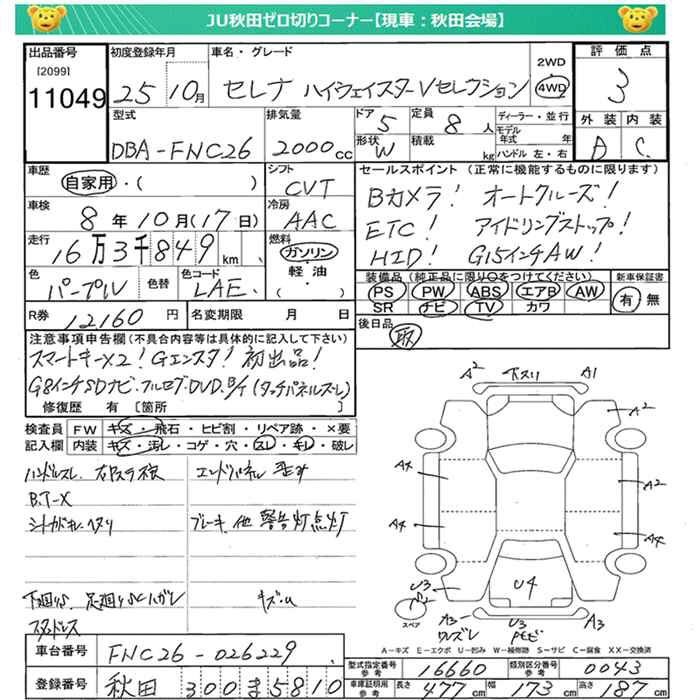 JU秋田ゼロ切りコーナー【現車：秋田会場】
出品番号 初度登録年月 車名・グレード 2WD 4WD 評価点
[2099]
11049 25 10月 セレナ ハイウェイスターVセレクション 3
型式 排気量 ドア 定員 ディーラー・並行 外装 内装
DBA-FNC26 2000cc 5 8人 モデル年式 年
形状 W 積載 kg ハンドル 左・右 D C
車歴 シフト セールスポイント（正常に機能するものに限ります）
自家用・( ) CVT Bカメラ! オートクルーズ!
車検 冷房
8年10月(17日) AAC ETC! アイドリングストップ!
走行 燃料
16万3千849km ガソリン HID! G15インチAW!
軽油・( )
色 色替 色コード 装備品（純正品に限り○をつけてください） 新車保証書
パープル LAE PS PW ABS エアB AW 有・無
SR ナビ TV カワ
R券 12160円 名変期限 月 日 後日品 取
注意事項申告欄（不具合内容等は具体的に記入して下さい）
スマートキーX2! Gエンスタ! 初出品!
G8インチSDナビ.フルセグ.DVD.B/T(タッチパネルズレ)
修復歴 有 [箇所 ]
検査員 FW キズ・飛石・ヒビ割・リペア跡・×要
記入欄 内装 キズ・汚レ・コゲ・穴・スレ・キレ・破レ
ハンドルスレ
B.T-X
シートガキレ.ヘタリ ブレーキ、他 警告灯点灯
下回りS、足回りSCハガレ キズ.u
スタッドレス
A2 下スリ A1
A2
A4 A2
A4 A4
U3 U4
スペア A3 U3 A3
A－キズ E－エクボ U－凹み W－補修跡 S－サビ C－腐食 XX－交換済
車台番号 FNC26-026229
登録番号 秋田 300 ま 5810
型式指定番号 参考 16660 類別区分番号 参考 0043
車庫証明用 参考 長さ 477cm 幅 173cm 高さ 187cm